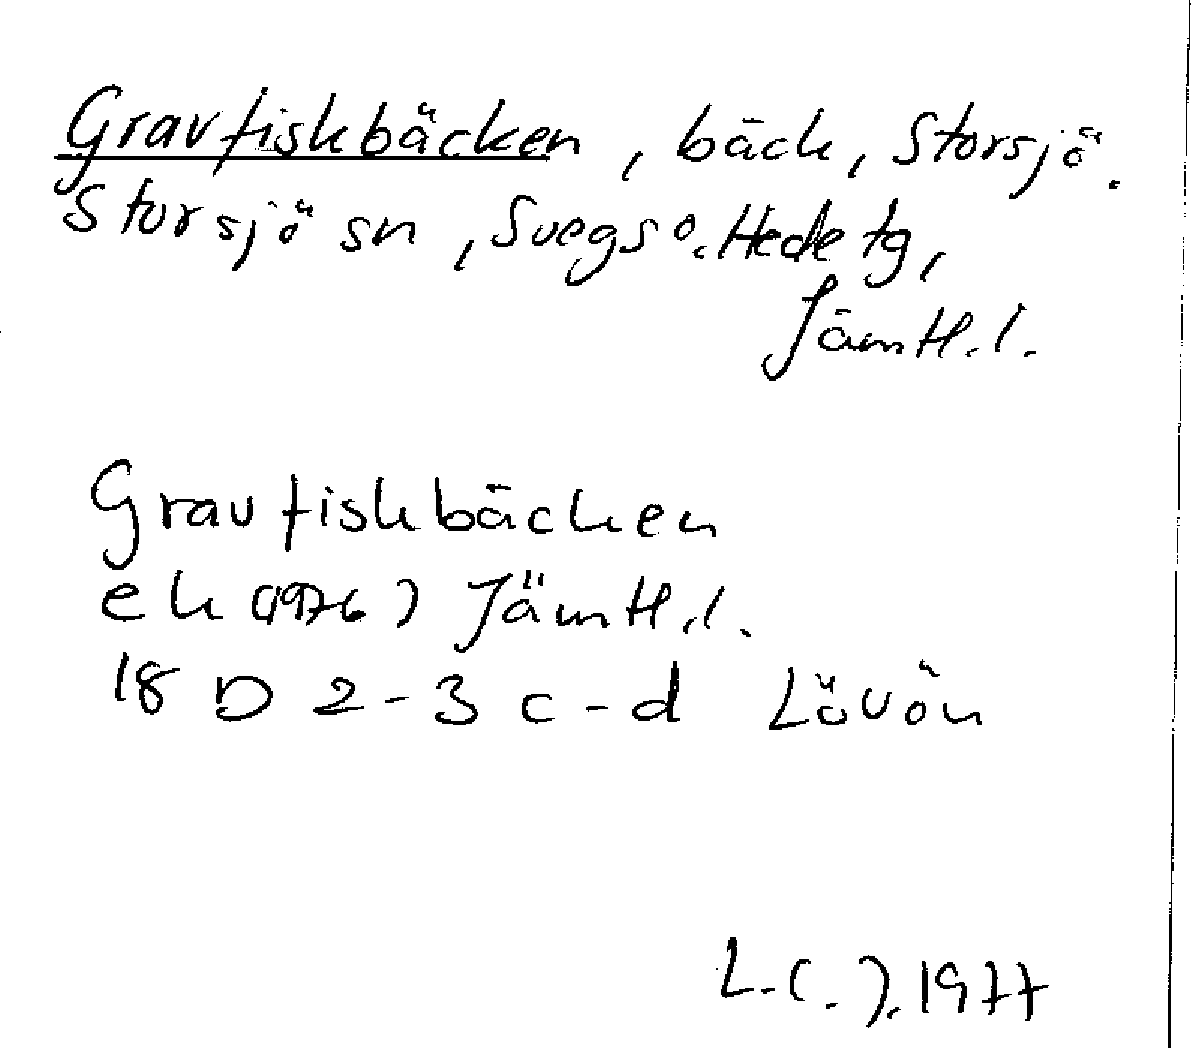 Gravfiskbäcken, bäck, Storsjö.
Storsjö sn, Svegs o. Hede tg,
Jämtl.l.
Gravfiskbäcken
ek (1976) Jämtl.l.
18 D 2-3 c-d Lövön
L.C.J. 1977